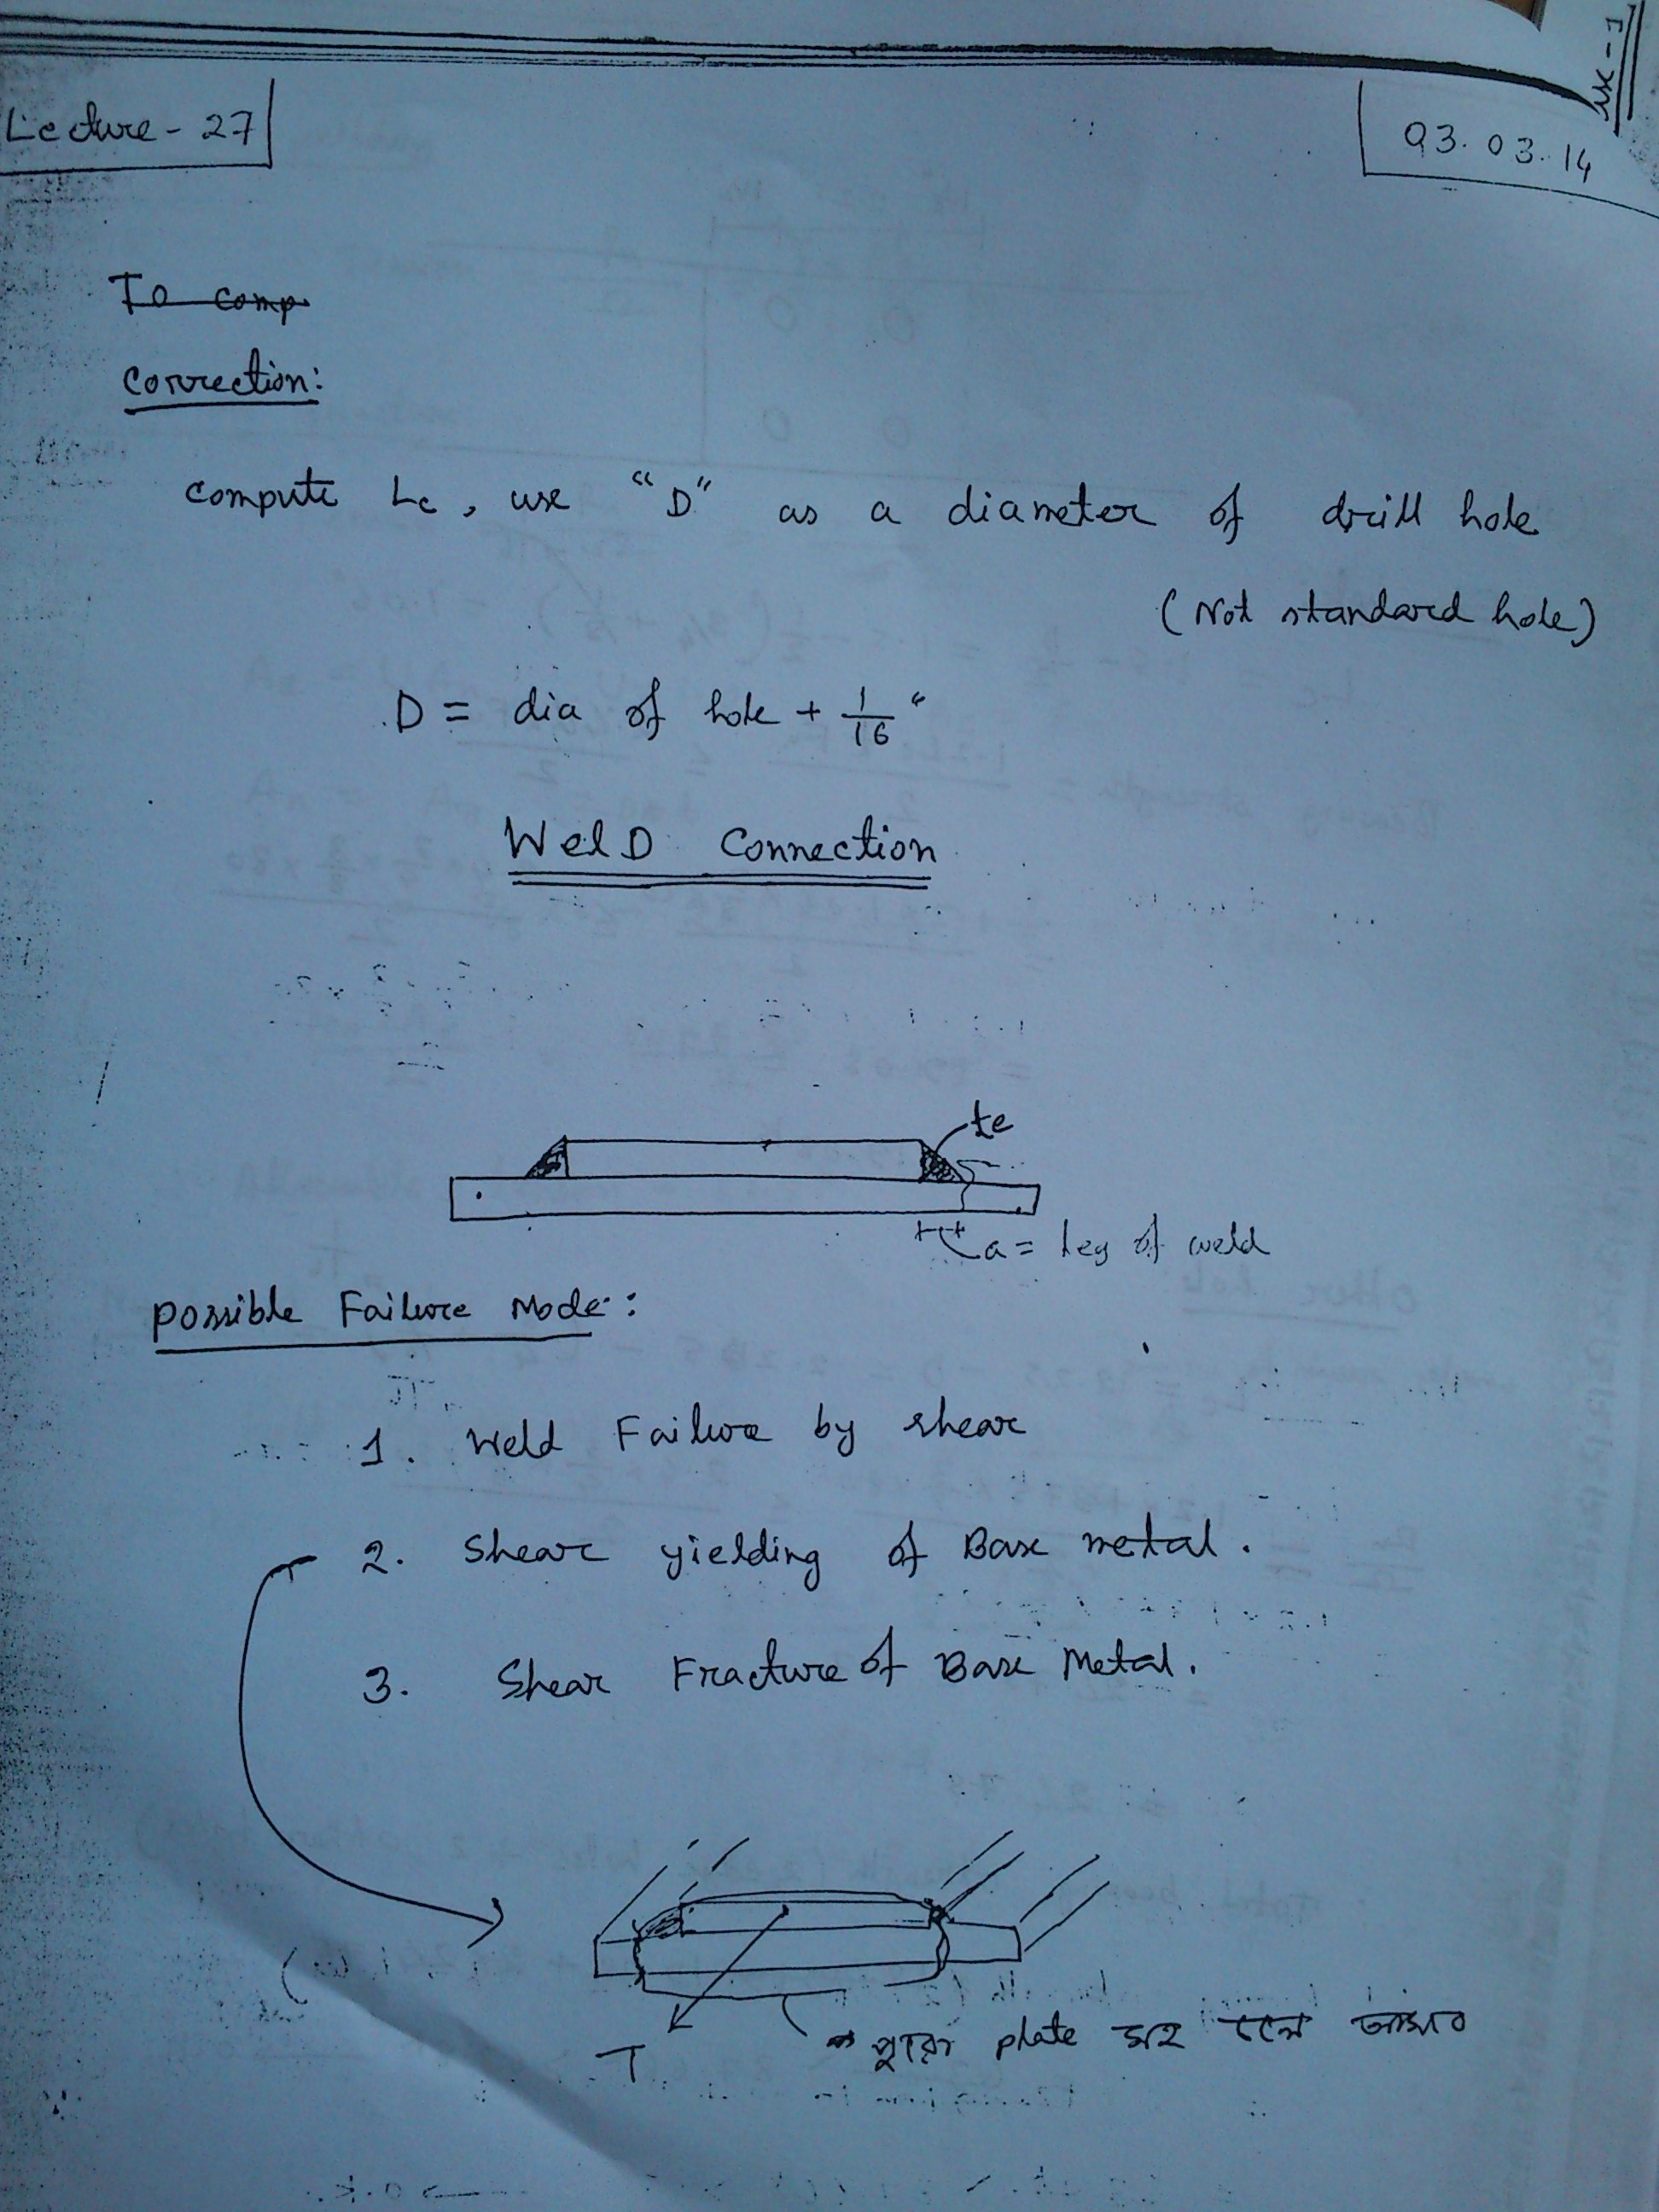 Lecture - 27
03.03.14
To comp
Correction:
compute Lc, use "D" as a diameter of drill hole
(Not standard hole)
D = dia of hole + 1/16"
WelD Connection
te
a = Leg of weld
Possible Failure Mode:
1. Weld Failure by shear
2. Shear yielding of Base metal.
3. Shear Fracture of Base Metal.
T
পুরো plate সহ চলে আসবে